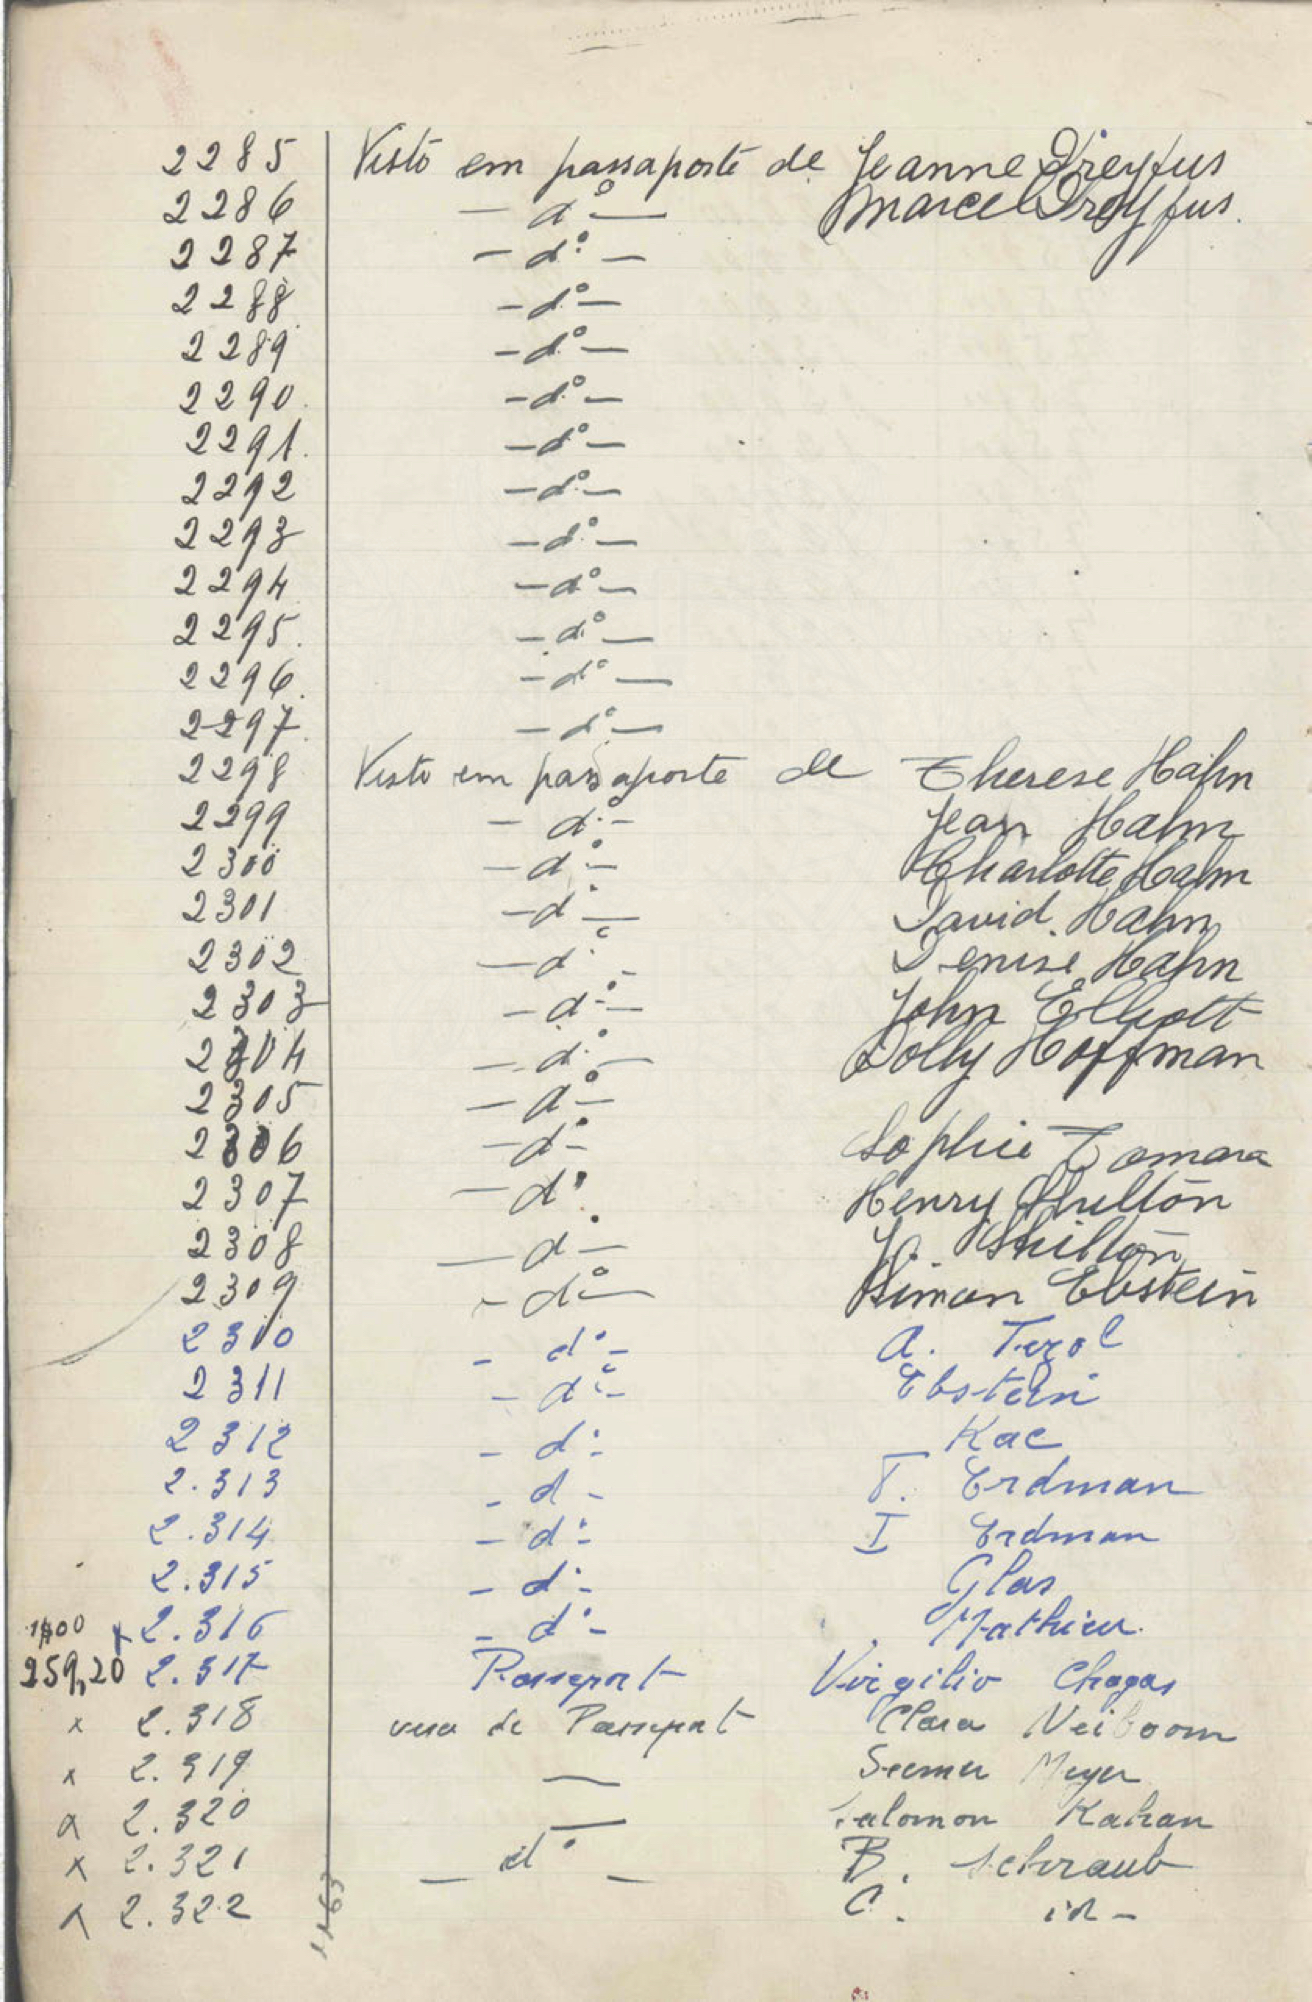 2285 Visto em passaporte de Jeanne Dreyfus
2286 — dº — Marcel Dreyfus.
2287 — dº —
2288 — dº —
2289 — dº —
2290 — dº —
2291 — dº —
2292 — dº —
2293 — dº —
2294 — dº —
2295 — dº —
2296 — dº —
2297 — dº —
2298 Visto em passaporte de Therese Hahn
2299 — dº — Jean Hahn
2300 — dº — Charlotte Hahn
2301 — dº — David Hahn
2302 — dº — Denise Hahn
2303 — dº — John Elliott
2304 — dº — Dolly Hoffman
2305 — dº —
2306 — dº — Sophie Tomara
2307 — dº Henry Shilton
2308 — dº — Shilton
2309 — dº — Simon Ebstein
2310 — dº — A. Terol
2311 — dº — Ebstein
2312 — dº — Kac
2.313 — d — T. Erdman
2.314 — dº — I Erdman
2.315 — dº — Glas
x 2.316 — dº — Mathieu
259,20 2.317 Passeport Virgilio Chagas
x 2.318 visa de Passeport Clara Neiboom
x 2.319 — Meyer
x 2.320 — Salomon Kahan
x 2.321 — dº — B. Schraub
x 2.322 C. id —
1163